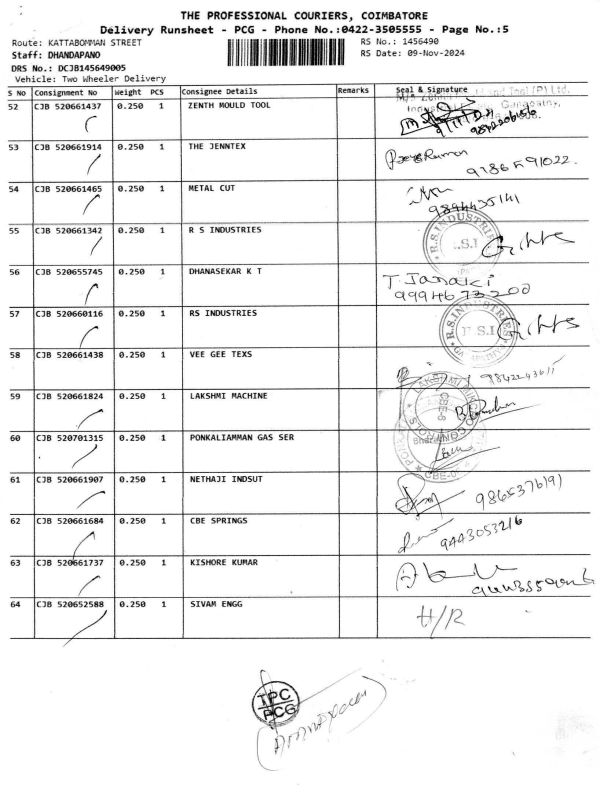 THE PROFESSIONAL COURIERS, COIMBATORE
Delivery Runsheet - PCG - Phone No.:0422-3505555 - Page No.:5
Route: KATTABOMMAN STREET
RS No.: 1456490
Staff: DHANDAPANO
RS Date: 09-Nov-2024
DRS No.: DCJB145649005
Vehicle: Two Wheeler Delivery
S No Consignment No Weight PCS Consignee Details Remarks Seal & Signature
52 CJB 520661437 0.250 1 ZENTH MOULD TOOL
53 CJB 520661914 0.250 1 THE JENNTEX
54 CJB 520661465 0.250 1 METAL CUT
9894435141
55 CJB 520661342 0.250 1 R S INDUSTRIES
R.S.INDUSTRIES
56 CJB 520655745 0.250 1 DHANASEKAR K T T. Janaki
9994673200
57 CJB 520660116 0.250 1 RS INDUSTRIES
R.S.INDUSTRIES
R.S.I
58 CJB 520661438 0.250 1 VEE GEE TEXS
59 CJB 520661824 0.250 1 LAKSHMI MACHINE
60 CJB 520701315 0.250 1 PONKALIAMMAN GAS SER
61 CJB 520661907 0.250 1 NETHAJI INDSUT
9865376191
62 CJB 520661684 0.250 1 CBE SPRINGS
9443053216
63 CJB 520661737 0.250 1 KISHORE KUMAR
64 CJB 520652588 0.250 1 SIVAM ENGG H/R
TPC
PCG